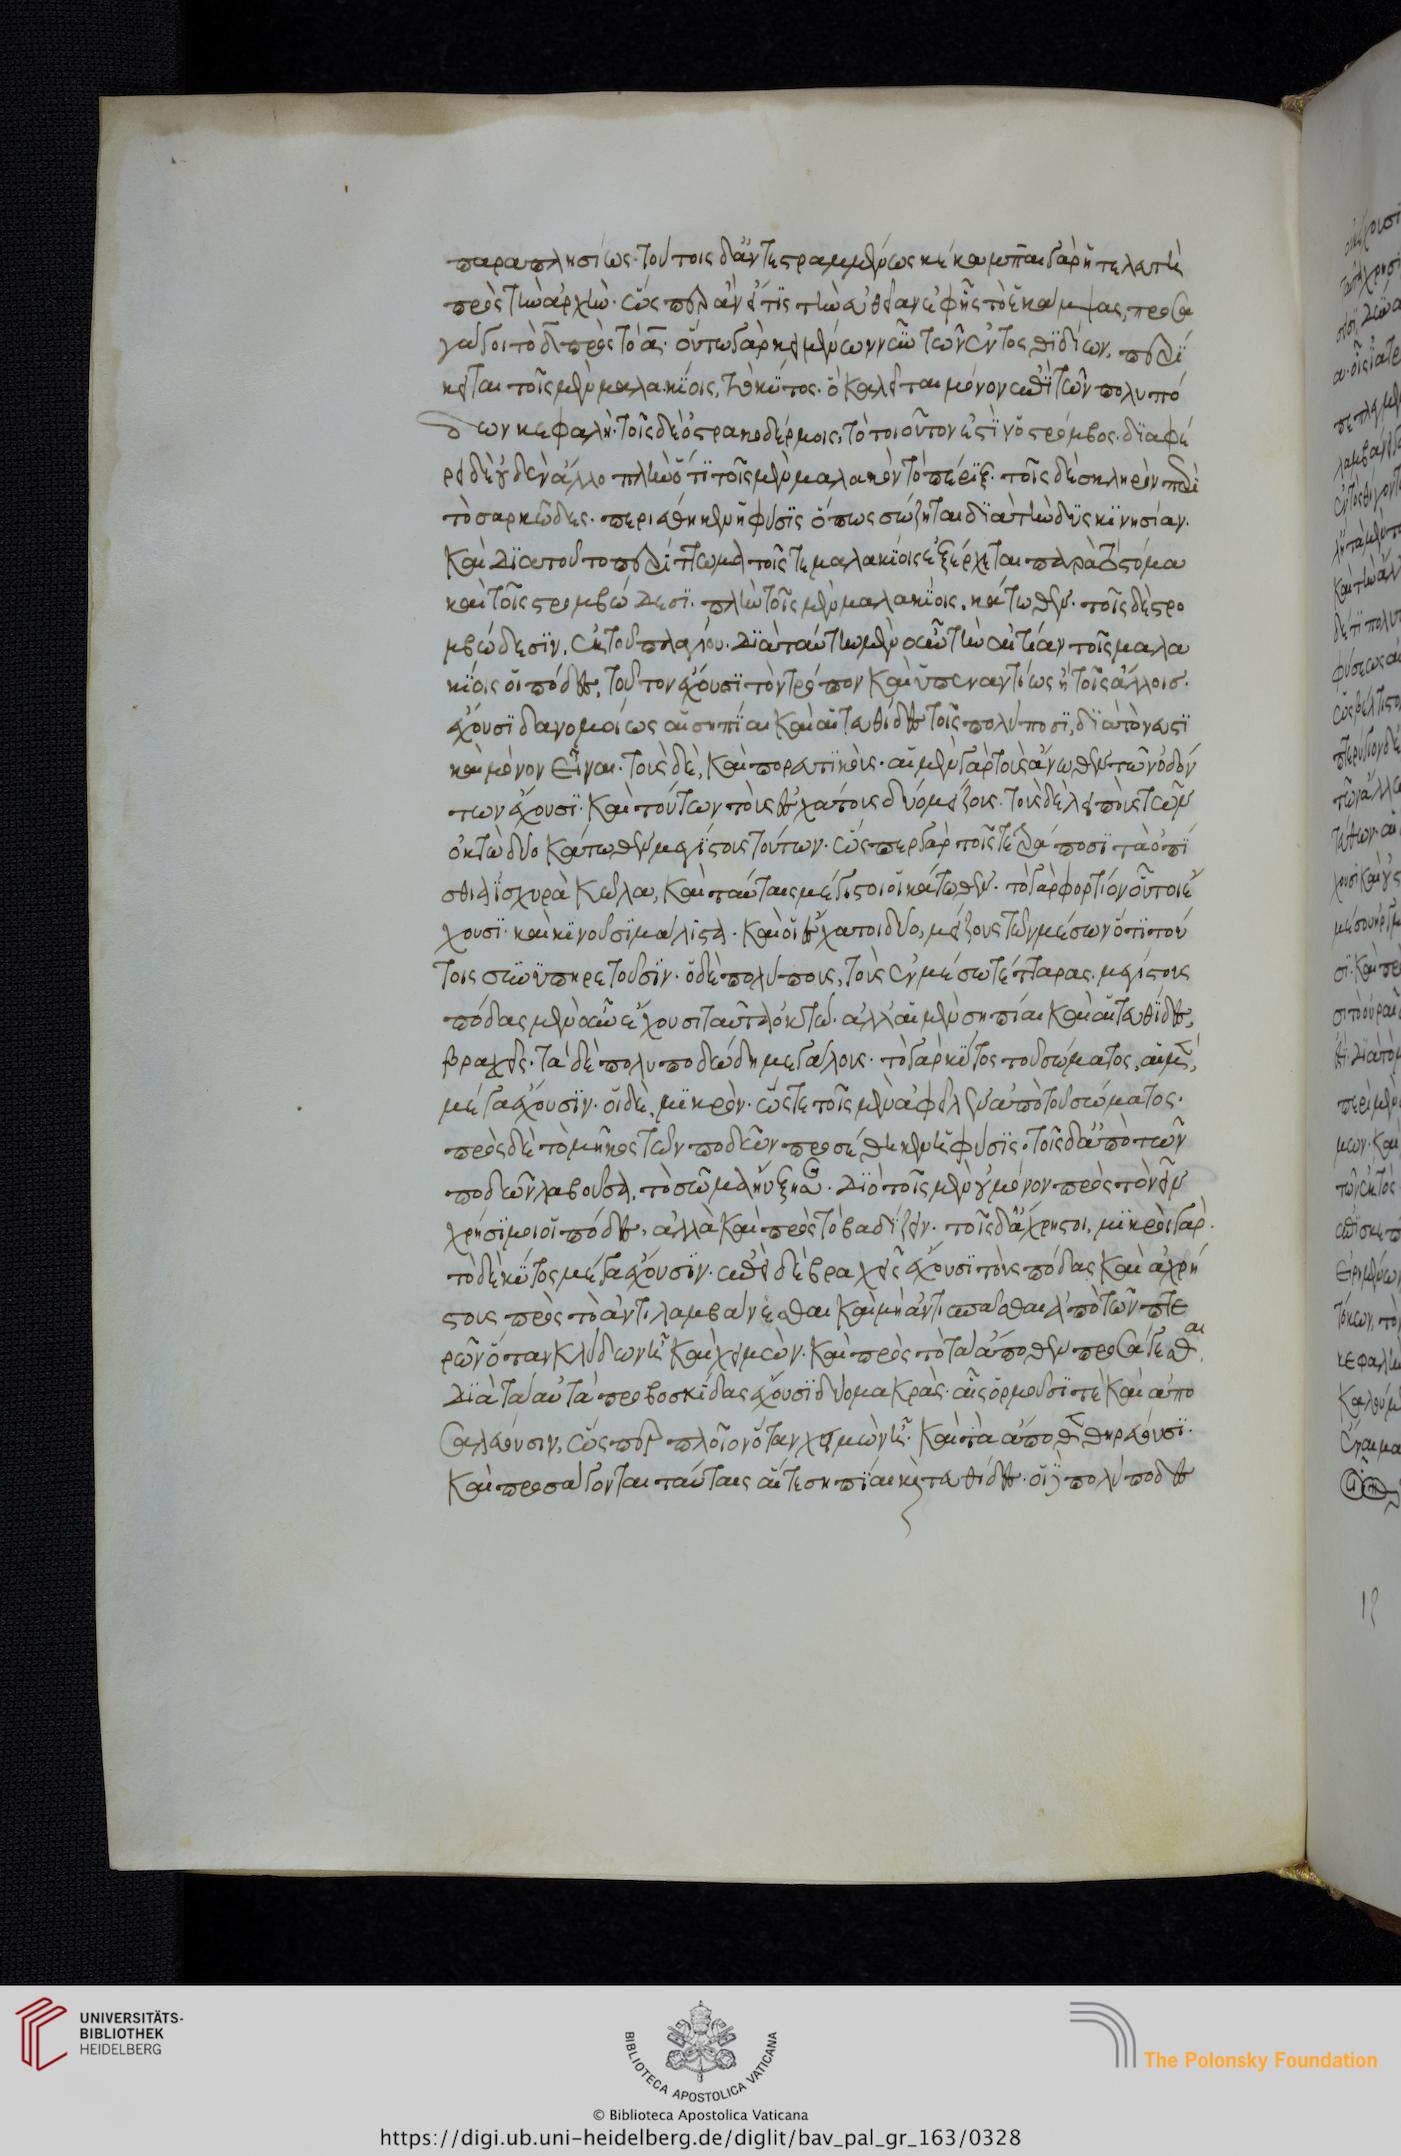 παραπλησίως· τούτοις δ' ἀντεστραμμένως κέκαμπται γὰρ ἡ τελευτὴ
πρὸς τὴν ἀρχὴν· ὥσπερ ἂν εἴ τις τὴν εὐθεῖαν ἐφ' ἧς τὸ ε κάμψας, προσα
γάγοι τὸ δ πρὸς τὸ α· οὕτω γὰρ κειμένων νῦν τῶν ἐντοσθϊδίων, περϊ
κειται τοῖς μὲν μαλακίοις, τὸ κύτος· ὃ καλεῖται μόνον ἐπὶ τῶν πολυπό
δων κεφαλή· τοῖς δὲ ὀστρακοδέρμοις, τὸ τοιοῦτον ἐστὶν ὁ στρόμβος· διαφέ
ρει δὲ οὐδὲν ἄλλο πλὴν ὅτι τοῖς μὲν μαλακὸν τὸ πέριξ· τοῖς δὲ σκληρὸν περὶ
τὸ σαρκῶδες· περιέθηκεν ἡ φύσις ὅπως σώζηται διὰ τὴν δυσκινησίαν·
Καὶ διὰ τοῦτο περίττωμα τοῖς τε μαλακίοις ἐξέρχεται παρὰ τὸ στόμα
καὶ τοῖς στρομβώδεσι· πλὴν τοῖς μὲν μαλακίοις, κάτωθεν· τοῖς δὲ στρο
μβώδεσιν, ἐκ τοῦ πλαγίου· διὰ ταύτην μὲν οὖν τὴν αἰτίαν τοῖς μαλα
κίοις οἱ πόδες, τοῦτον ἔχουσι τὸν τρόπον καὶ ὑπεναντίως ἢ τοῖς ἄλλοις·
ἔχουσι δ' ἀνομοίως αἱ σηπίαι καὶ αἱ τευθίδες τοῖς πολύποσι, διὰ τὸ νευστι
καὶ μόνον εἶναι· τοὺς δὲ, καὶ πορευτικοὺς· αἱ μὲν γὰρ τοὺς ἄνωθεν τῶν ὀδόν
των ἔχουσι· καὶ τούτων τοὺς ἐσχάτους δύο μείζους· τοὺς δὲ λειποὺς τῶν
ὀκτὼ δύο κάτωθεν μεγίστους τούτων· ὥσπερ γὰρ τοῖς τετράποσι τὰ ὀπί
σθια ἰσχυρὰ κῶλα, καὶ ταύταις μέγιστοι οἱ κάτωθεν· τὸ γὰρ φορτίον οὗτοι ἔ
χουσι· καὶ κινοῦσι μάλιστα· καὶ οἱ ἔσχατοι δύο, μείζους τῶν μέσων ὅτι τού
τοις συνυπηρετοῦσιν· ὁ δὲ πολύπους, τοὺς ἐν μέσω τέτταρας μεγίστους
πόδας μὲν οὖν ἔχουσι ταῦτα ὀκτώ· ἀλλ' αἱ μὲν σηπίαι καὶ αἱ τευθίδες,
βραχεῖς· τὰ δὲ πολυποδώδη μεγάλους· τὸ γὰρ κύτος τοῦ σώματος, αἱ μὲν,
μέγα ἔχουσιν· οἱ δὲ, μικρὸν· ὥστε τοῖς μὲν ἀφεῖλεν ἀπὸ τοῦ σώματος·
πρὸς δὲ τὸ μῆκος τῶν ποδῶν προσέθηκεν ἡ φύσις· τοῖς δ' ἀπὸ τῶν
ποδῶν λαβοῦσα, τὸ σῶμα ηὔξησε· διὸ τοῖς μὲν οὐ μόνον πρὸς τὸ νεῖν
χρήσιμοι οἱ πόδες, ἀλλὰ καὶ πρὸς τὸ βαδίζειν· τοῖς δ' ἄχρηστοι, μικροὶ γὰρ·
τὸ δὲ κύτος μέγα ἔχουσιν· ἐπεὶ δὲ βραχεῖς ἔχουσι τοὺς πόδας καὶ ἀχρή
στους πρὸς τὸ ἀντιλαμβάνεσθαι καὶ μὴ ἀντισπᾶσθαι ἀπὸ τῶν πετ
ρῶν ὅταν κλύδων ᾖ καὶ χειμὼν· καὶ πρὸς τὸ τὰ ἄποθεν προσάγεσθαι
διὰ ταῦτα προβοσκίδας ἔχουσι δύο μακρὰς· αἷς ὁρμοῦσί τε καὶ ἀπο
σαλεύουσιν, ὥσπερ πλοῖον ὅταν χειμὼν ᾖ· καὶ τὰ ἄποθεν θηρεύουσι·
καὶ προσάγονται ταύταις αἵ τε σηπίαι καὶ τευθίδες· οἱ δὲ πολύποδες
UNIVERSITÄTS-
BIBLIOTHEK
HEIDELBERG
BIBLIOTECA APOSTOLICA VATICANA
The Polonsky Foundation
© Biblioteca Apostolica Vaticana
https://digi.ub.uni-heidelberg.de/diglit/bav_pal_gr_163/0328